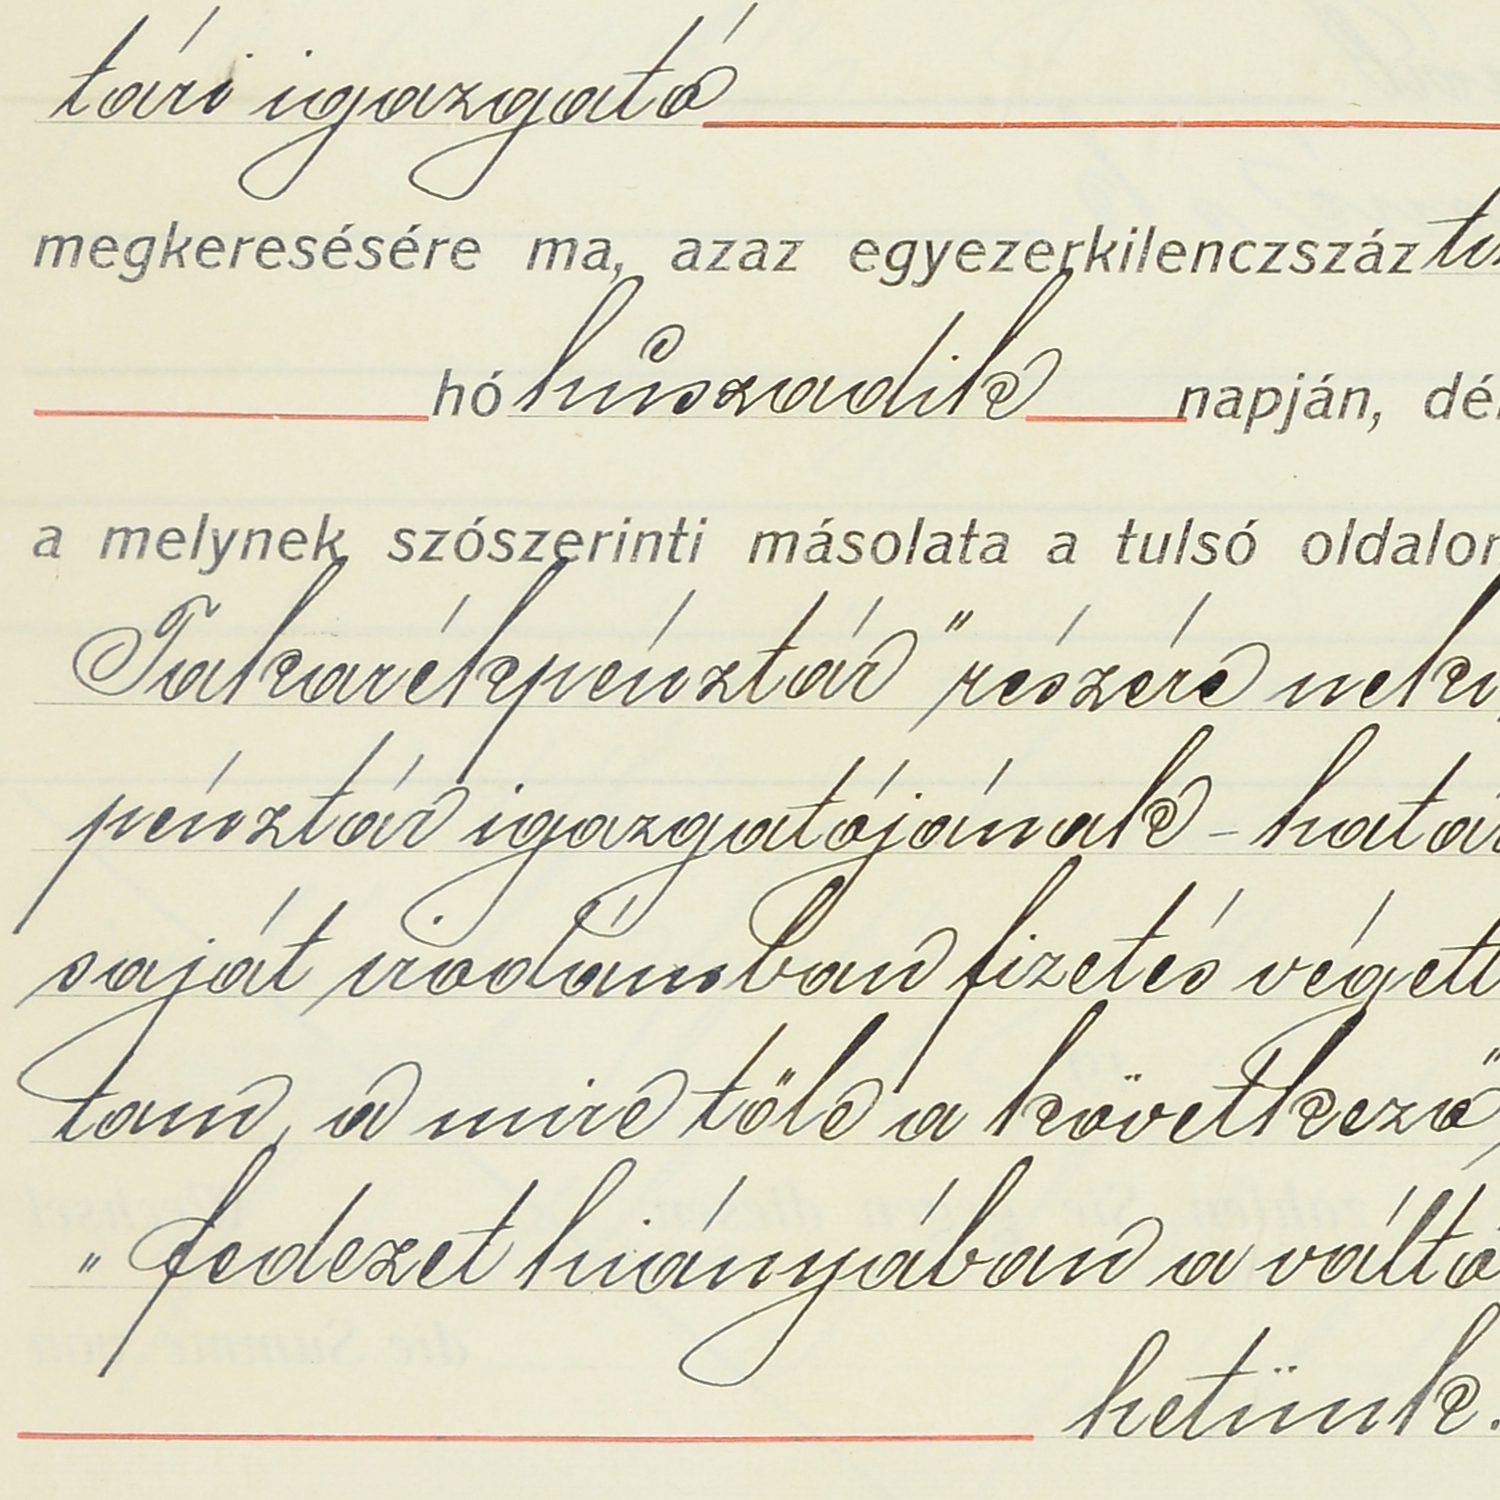 tári igazgató
megkeresésére ma, azaz egyezerkilenczszáz
hó húszadik napján, dél
a melynek szószerinti másolata a tulsó oldalon
Takarékpénztár" részére neki
pénztár igazgatójának - határ
saját irodámban fizetés végett
tam, a mire tőle a következő
" fedezet hiányában a váltó
hetünk.